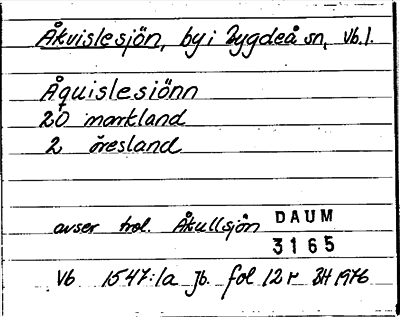 Åkvislesjön, by i Bygdeå sn, Vb.l.
Åquislesiönn
20 markland
2 öresland
avser trol. Åkullsjön
DAUM
3165
Vb 1547:1a Jb. fol 12 r BH 1976